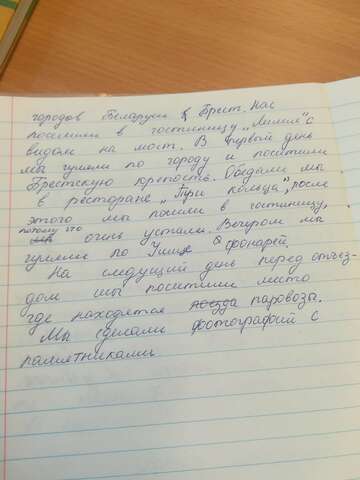 городов Беларуси Брест. Нас
поселили в гостиницу „Лилия" с
видом на мост. В первый день
мы гуляли по городу и посетили
Брестскую крепость. Обедали мы
в ресторане „Три кольца", после
этого мы пошли в гостиницу,
потому что очень устали. Вечером мы
гуляли по Улице фонарей.
На следущий день перед отъез-
дом мы посетили место
где находятся поезда паровозы.
Мы сделали фотографии с
памятниками